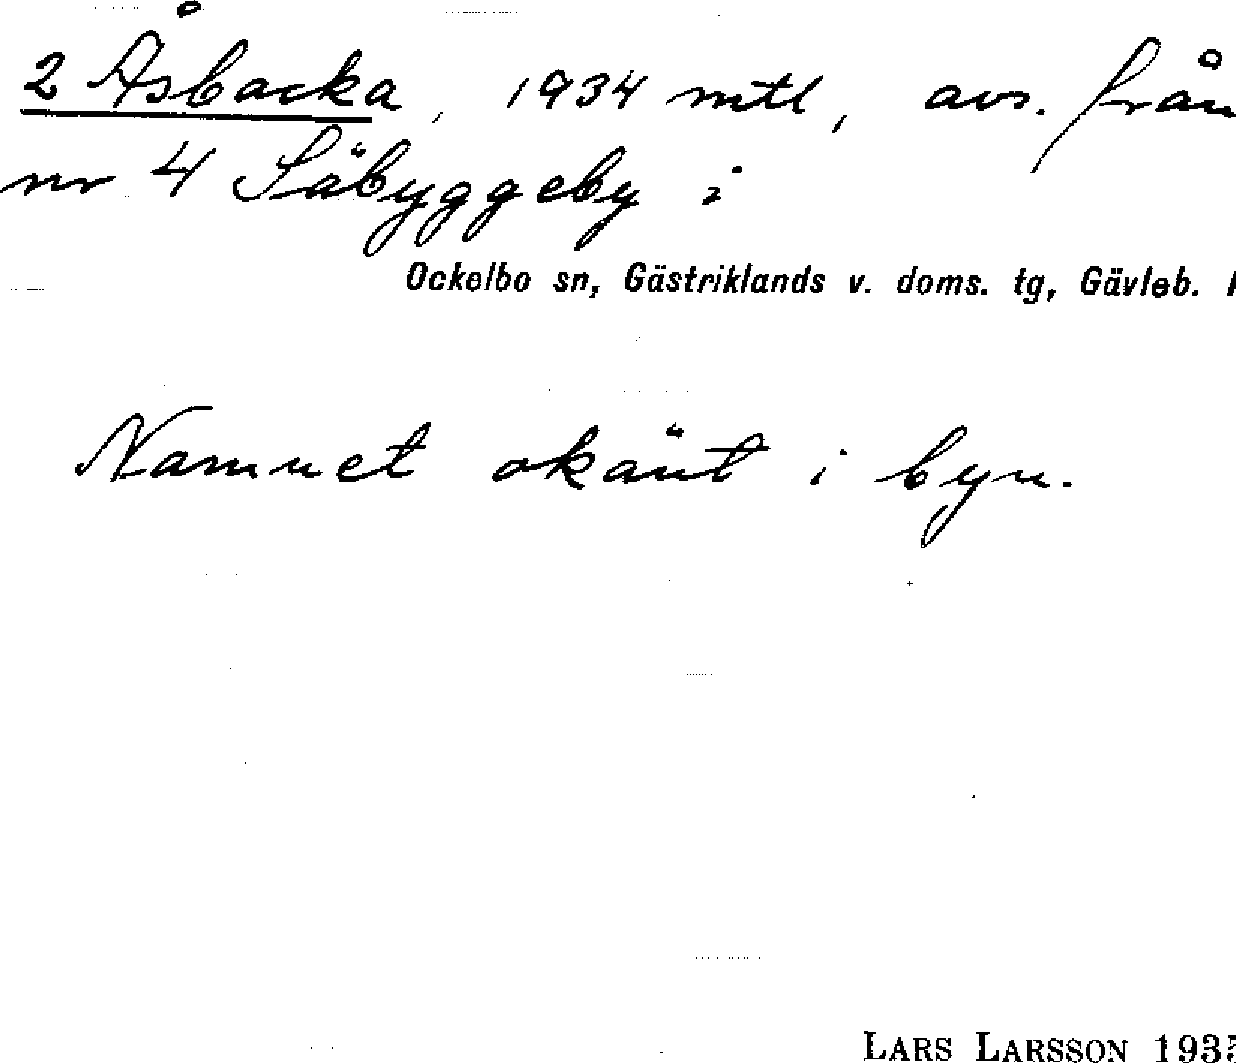 2 Åsbacka, 1934 mtl, avs. från
nr 4 Säbyggeby i
Ockelbo sn, Gästriklands v. doms. tg, Gävleb.
Namnet okänt i byn.
LARS LARSSON